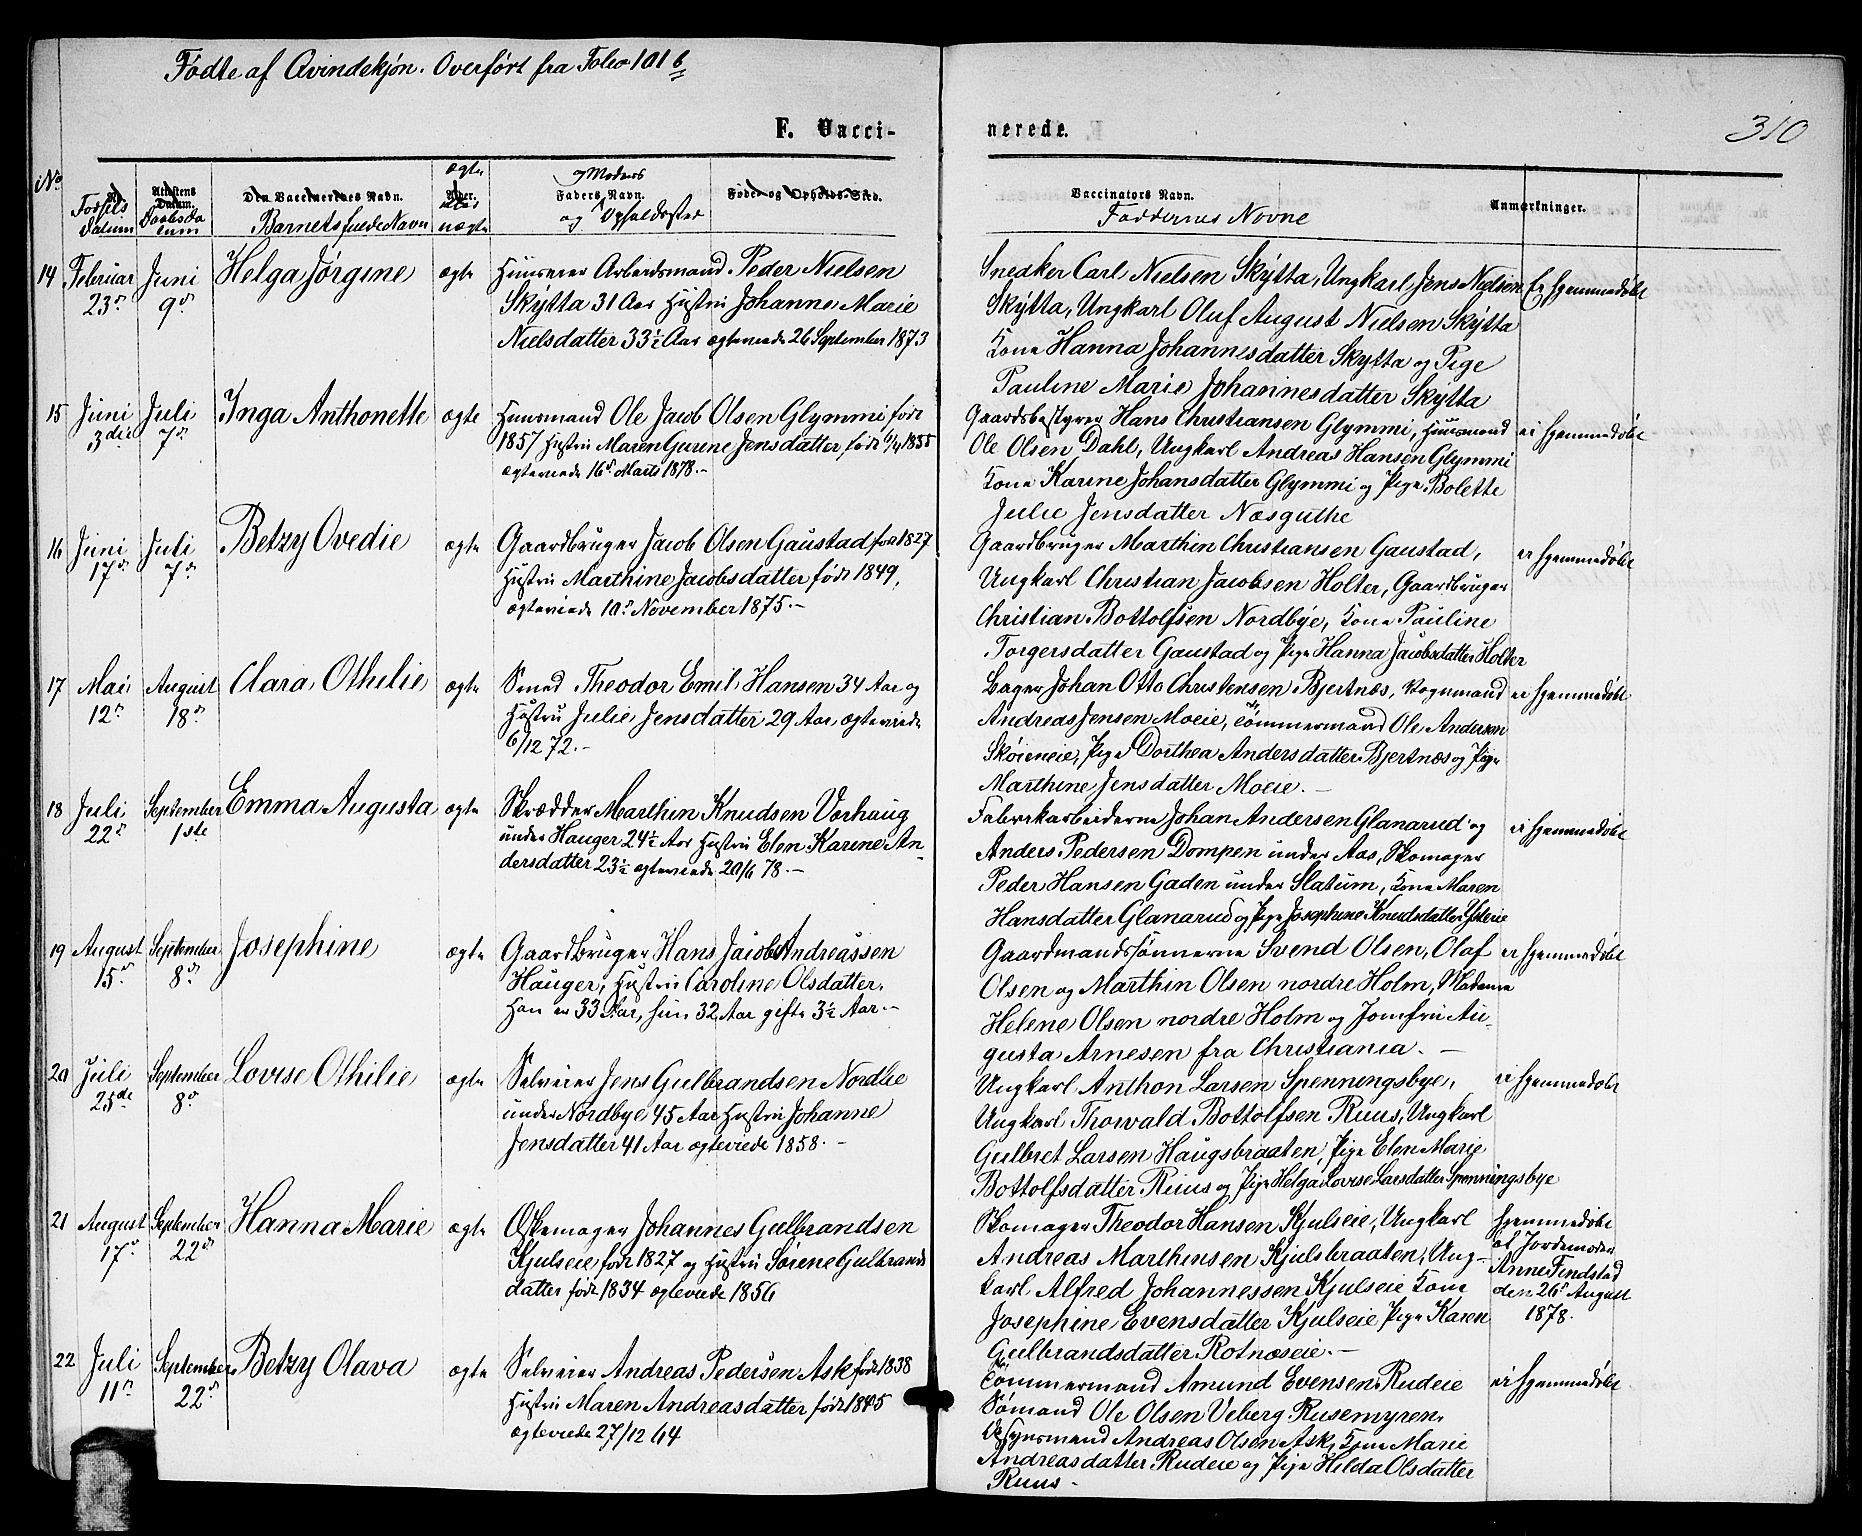 Fødte af Qvindekjøn. Overført fra Folio 101 b
F. Vacci-
nerede.
310
No
Fødsels Datum
Attestens Datum.
Daabsda tum
Den Vaccineredes Navn.
Barnets fulde Navn
ægte
Alder.
eller
uægte
og Moders
Faders Navn.
og Opholdssted
Føde- og Opholds-Sted.
Vaccinators Navn.
Faddernes Navne
Anmærkninger.
14 Februar 23de Juni 9de Helga Jørgine ægte
Huuseier Arbeidsmand Peder Nielsen
Skÿtta 31 Aar Hustru Johanne Marie
Nielsdatter 33½ Aar ægteviede 26 September 1873
Snedker Carl Nielsen Skÿtta, Ungkarl Jens Nielsen
Skÿtta, Ungkarl Oluf August Nielsen Skÿtta
Kone Hanna Johannesdatter Skytta og Pige
Pauline Marie Johannesdatter Skÿtta
Ej hjemmedøbt
15 Juni 3die Juli 7de Inga Anthonette ægte
Huusmand Ole Jacob Olsen Glymmi, født
1857 Hustru Maren Gurine Jensdatter, født 1/4 1855
ægteviede 16de Marts 1878.-
Gaardsbestyrer Hans Christiansen Glymmi, Huusmand
Ole Olsen Dahl, Ungkarl Andreas Hansen Glymmi
Kone Karine Johansdatter Glymmi og Pige Bolette
Julie Jensdatter Næsguthe
ei hjemmedøbt
16 Juni 17de Juli 7de Betzy Ovedie ægte
Gaardbruger Jacob Olsen Gaustad født 1827
Hustru Marthine Jacobsdatter født 1849,
ægteviede 10de November 1875.-
Gaardbruger Marthin Christiansen Gaustad,
Ungkarl Christian Jacobsen Holter, Gaardbruger
Christian Bottolfsen Nordbÿe, Kone Pauline
Torgersdatter Gaustad og Pige Hanna Jacobsdatter Holter
ei hjemmedøbt
17 Mai 12te August 18de Clara Othilie ægte
Smed Theodor Emil Hansen 34 Aar og
Hustru Julie Jensdatter 29 Aar, ægteviede
6/12 72.-
Bager Johan Otto Christensen Bjertnæs, Vognmand
Andreas Jensen Moeie, Tømmermand Ole Andersen
Skøieneie, Pige Dorthea Andersdatter Bjertnæs og Pige
Marthine Jensdatter Moeie.-
ei hjemmedøbt
18 Juli 22de September 1ste Emma Augusta ægte
Skrædder Marthin Knudsen Vorhaug
under Hauger 24½ Aar Hustru Elen Karine An-
dersdatter 23½ ægteviede 20/6 78.-
Fabrikarbeiderne Johan Andersen Glanarud og
Anders Pedersen Dompen under Aas, Skomager
Peder Hansen Gaden under Slatum, Kone Maren
Hansdatter Glanarud og Pige Josephine Knudsdatter Ysterie
ei hjemmedøbt
19 August 15de September 8de Josephine ægte
Gaardbruger Hans Jacob Andreassen
Hauger, Hustru Caroline Olsdatter.
Han er 33 Aar, hun 32 Aar gifte 3½ Aar.-
Gaardmandssønnerne Svend Olsen, Olaf
Olsen og Marthin Olsen nordre Holm, Madame
Helene Olsen nordre Holm og Jomfru Au-
gusta Arnesen fra Christiania.-
ei hjemmedøbt
20 Juli 25de September 8de Lovise Othilie ægte
Selveier Jens Gulbrandsen Nordlie
under Nordbye 45 Aar Hustru Johanne
Jensdatter 41 Aar ægteviede 1858.-
Ungkarl Anthon Larsen Spenningsbye,
Ungkarl Thorvald Bottolfsen Ruus, Ungkarl
Gulbret Larsen Haugsbraaten, Pige Elen Marie
Bottolfsdatter Ruus og Pige Helga Lovise Larsdatter Spenningsbye
ei hjemmedøbt
21 August 17de September 22de Hanna Marie ægte
Æskemager Johannes Gulbrandsen
Kjulseie, født 1827 og Hustru Sørene Gulbrands
datter født 1834 ægteviede 1856
Skomager Theodor Hansen Kjulseie, Ungkarl
Andreas Marthinsen Kjulsbraaten, Ung-
karl Alfred Johannessen Kjulseie Kone
Josephine Evensdatter Kjulseie Pige Karen
Gulbrandsdatter Rotnæseie.-
hjemmedøbt
af Jordemoder
Anne Findstad
den 26de August
1878.
22 Juli 11te September 22de Betzy Olava ægte
Selveier Andreas Pedersen Ask født 1838
Hustru Maren Andreasdatter født 1845
ægteviede 27/12 64
Tømmermand Amund Evensen Rudeie
Sømand Ole Olsen Veberg Rusemyren,
Andreas Olsen Ask, Kone Marie
Andreasdatter Rudeie og Pige Hilda Olsdatter
Ruus-
ei hjemmedøbt